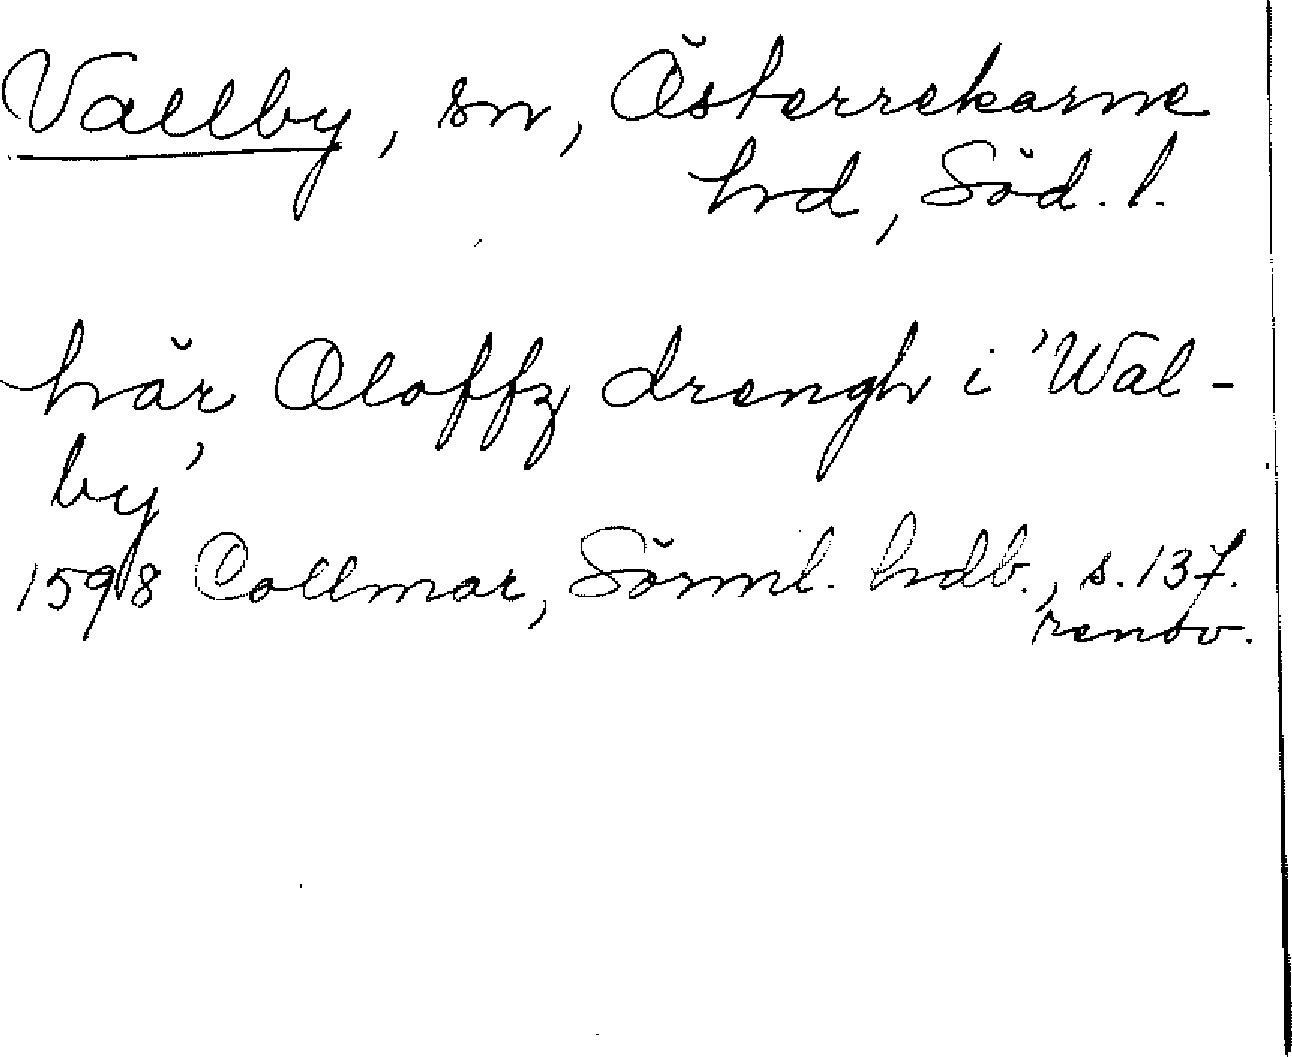 Vallby, sn, Österrekarne
hrd, Söd. l.
här Oloffz drengh i 'Wal-
by'
1598 Collmar, Sörml. hdb., s. 137.
renov.